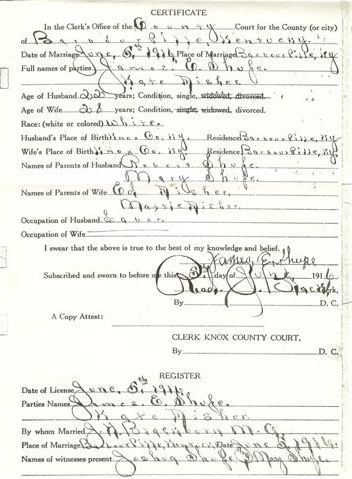 CERTIFICATE
In the Clerk's Office of the County Court for the County (or city)
of Barbourville Kentucky
Date of Marriage June, 5th, 1916 Place of Marriage Barbourville, Ky
Full names of parties James E. Shupe
Kate
Age of Husband 22 years; Condition, single, widowed, divorced.
Age of Wife 21 years; Condition, single, widowed, divorced.
Race: (white or colored) White.
Husband's Place of Birth Knox Co, Ky. Residence Barbourville, Ky.
Wife's Place of Birth Knox Co, Ky Residence Barbourville, Ky.
Names of Parents of Husband Robert Shupe.
Mary Shupe.
Names of Parents of Wife Ed
Occupation of Husband Labor.
Occupation of Wife
I swear that the above is true to the best of my knowledge and belief.
James E. Shupe
Subscribed and sworn to before me this 5th day of June 1916
Read. J. Black Clerk.
By D. C.
A Copy Attest:
CLERK KNOX COUNTY COURT,
By D. C.
REGISTER
Date of License June, 5th, 1916.
Parties Names James E. Shupe.
Kate
By whom Married J. H. Blackburn M. G.
Place of Marriage Barbourville, Date June 5th 1916.
Names of witnesses present Joshua Shupe Mary Shupe.